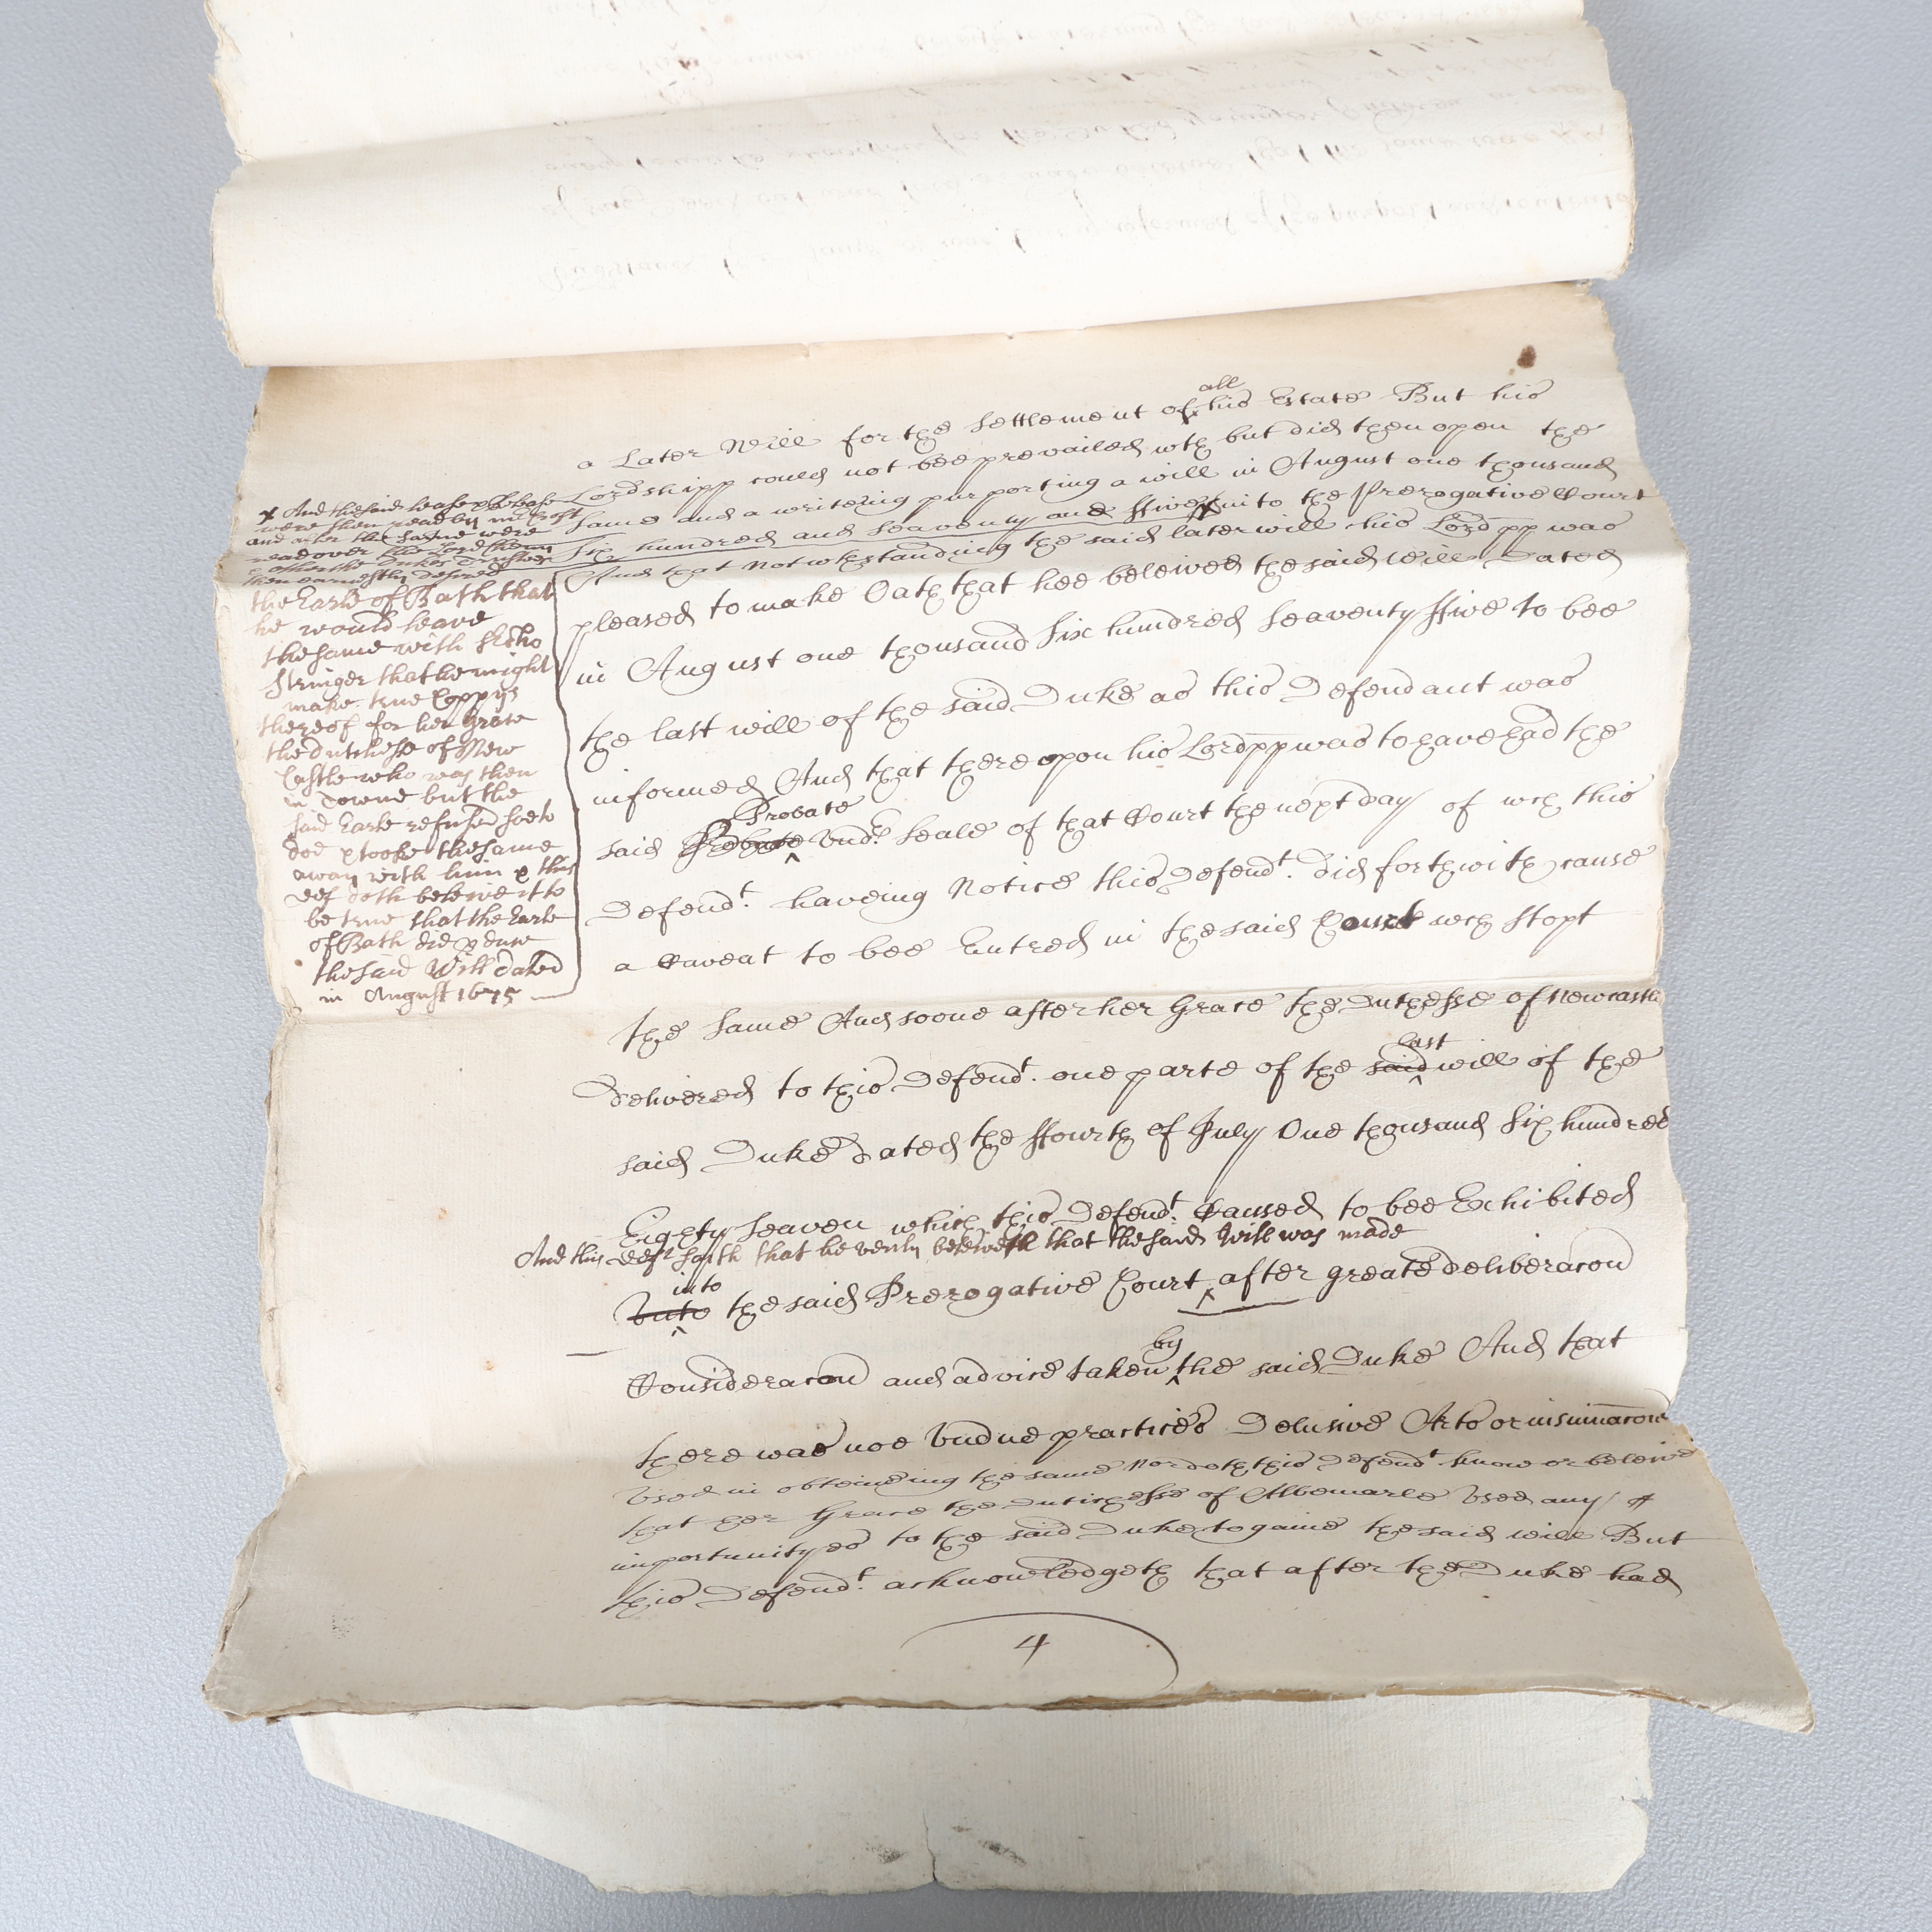 a Later Will for the Settlement of all his Estate But his
Lordshipp could not bee prevailed wth but did then open the
same and a writeing purporting a will in August one thousand
Six hundred and Seaventy and ffive x into the Prerogative Court
And that Notwthstanding the said later will his Lordpp was
pleased to make Oath that hee beleived the said Will Dated
in August one thousand Six hundred Seaventy ffive to bee
the last will of the said Duke as this Defendant was
informed And that thereupon his Lordpp was to have had the
said Probate Probate Undr Seale of that Court the next day of wch this
Defendt. haveing Notice this Defendt. did forthwith cause
a Caveat to bee Entred in the said Court wch stopt
x And the said lease & release
were then read by mr
and after the same were
read over the Lord
& other the Dukes Trustees
then earnestly desired
the Earle of Bath that
he would leave
the same with Serjt
Stringer that he might
make true Coppys
thereof for her Grace
the dutchess of New
Castle who was then
in Towne but the
said Earle refused soe to
doe & tooke the same
away with him & this
def doth beleive it to
be true that the Earle
of Bath did
the said Will dated
in August 1675
the same And soone after her Grace the Dutchesse of Newcastle
Delivered to this Defendt. one parte of the said last will of the
said Duke dated the ffourth of July One thousand Six hundred
Eighty Seaven which this Defendt. Caused to bee Exhibited
And this deft saith that he verily beleiveth that the said Will was made
Unto into the said Prerogative Court after greate deliberacon
Consideracon and advice taken by the said Duke And that
there was noe Undue practices Delusive Arts or insinuacons
Used in obteineing the same Nor doth this Defendt know or beleive
that her Grace the Dutchesse of Albemarle Used any
importunityes to the said Duke to gaine the said will But
this Defendt. acknowledgeth that after the Duke had
4